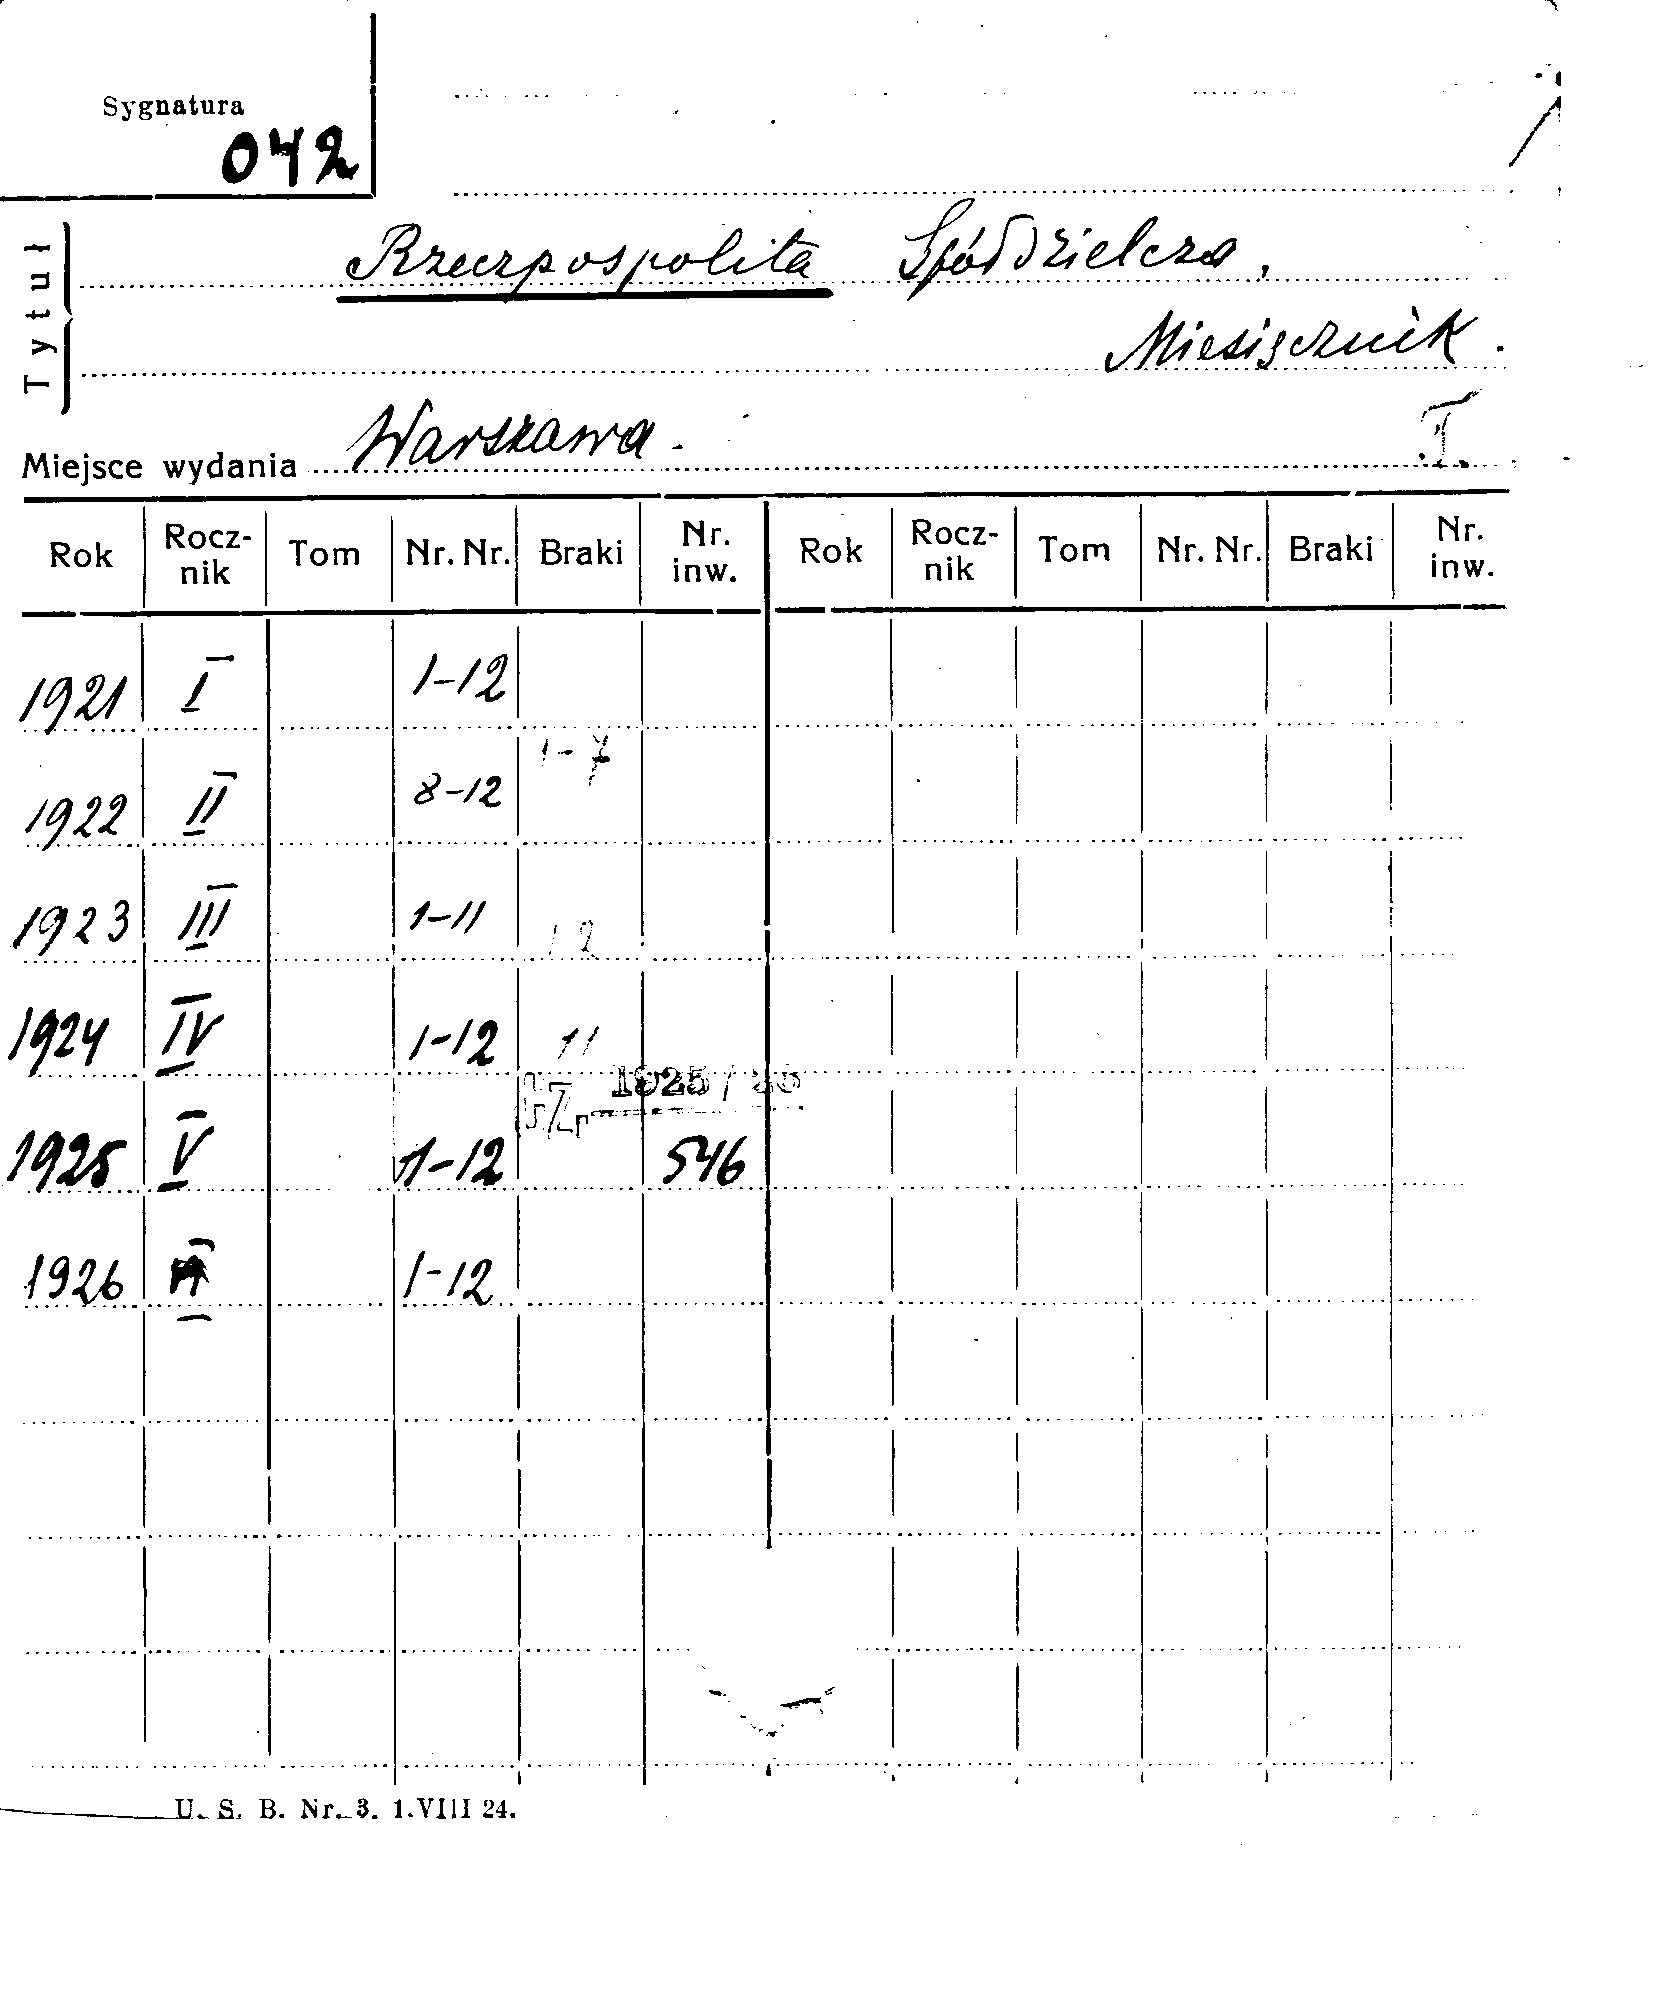 Sygnatura
042
Tytuł
Rzeczpospolita Spółdzielcza,
Miesięcznik.
Miejsce wydania Warszawa. I.
Rok Rocz-nik Tom Nr. Nr. Braki Nr. inw. Rok Rocz-nik Tom Nr. Nr. Braki Nr. inw.
1921 I 1-12
1922 II 8-12 1-7
1923 III 1-11 12
1924 IV 1-12 11
1925 V 1-12 1925/ 546
1926 1-12
U. S. B. Nr. 3. 1.VIII 24.